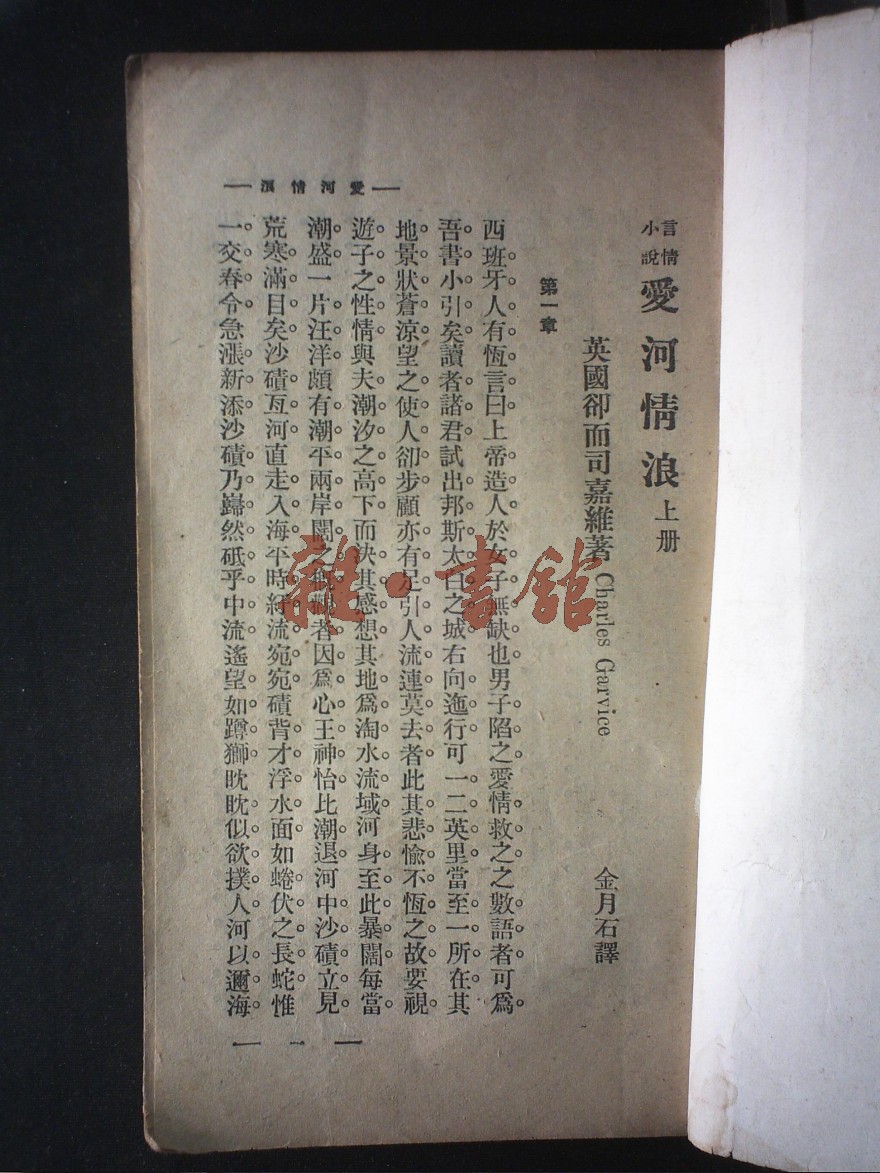 言情
小說
愛河情浪 上册
英國卻而司嘉維著 Charles Garvice 金月石譯
第一章
西班牙人有恆言曰上帝造人於女子無缺也男子陷之愛情救之之數語者可爲
吾書小引矣讀者諸君試出邦斯太白之城右向迤行可一二英里當至一所在其
地景狀蒼涼望之使人卻步顧亦有足引人流連莫去者此其悲愉不恆之故要視
遊子之性情與夫潮汐之高下而決其感想其地爲淘水流域河身至此暴闊每當
潮盛一片汪洋頗有潮平兩岸闊之觀者因爲心王神怡比潮退河中沙磧立見
荒寒滿目矣沙磧亙河直走入海平時紆流宛宛磧背才浮水面如蜷伏之長蛇惟
一交春令急漲新添沙磧乃巋然砥乎中流遙望如蹲獅眈眈似欲撲人河以邇海
愛河情浪
一
雜·書館